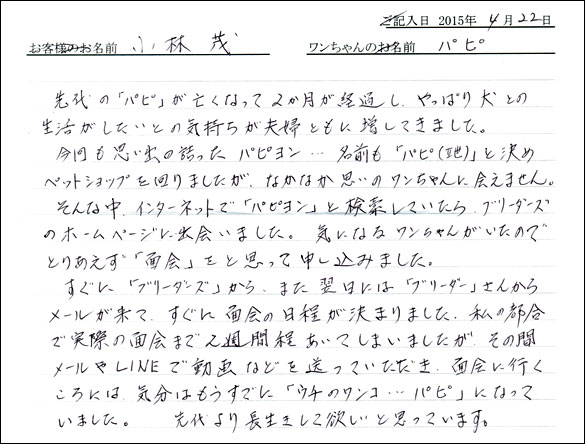 ご記入日 2015年 4月22日
お客様のお名前 小林 茂 ワンちゃんのお名前 パピ
先代の「パピ」が亡くなって2か月が経過し、やっぱり犬との
生活がしたいとの気持ちが夫婦ともに増してきました。
今回も思い出の詰った パピヨン… 名前も「パピ」と決め
ペットショップを回りましたが、なかなか思いのワンちゃんに会えません。
そんな中、インターネットで「パピヨン」と検索していたら、ブリーダーズ
のホームページに出会いました。 気になる ワンちゃんがいたので
とりあえず「面会」をと思って申し込みました。
すぐに「ブリーダーズ」から、また翌日には「ブリーダー」さんから
メールが来て、すぐに面会の日程が決まりました。私の都合
で実際の面会まで2週間程あいてしまいましたが、その間
メールやLINEで動画などを送っていただき、面会に行く
ころには、気分はもうすでに「ウチのワンコ…パピ」になって
いました。 先代より長生きして欲しいと思っています。